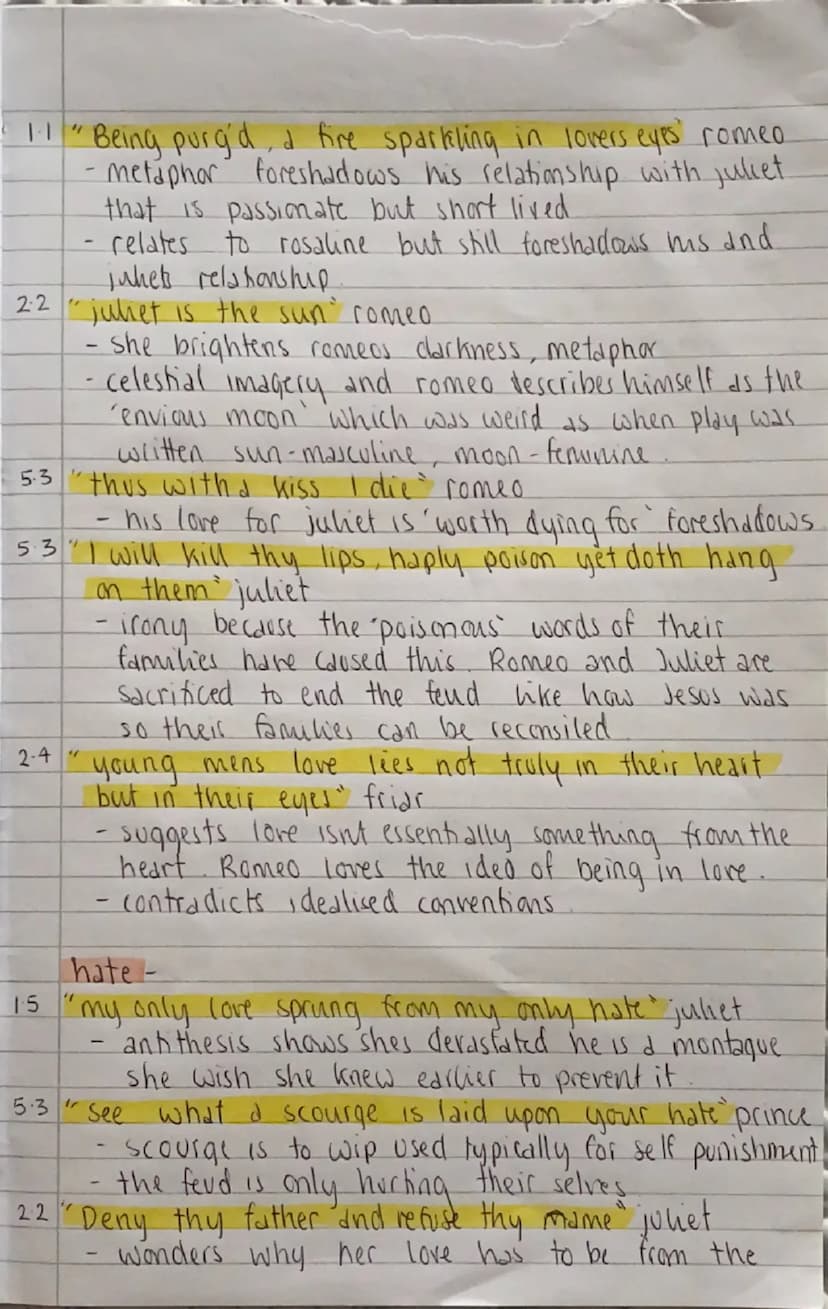 1.1 "Being purg'd, a fire sparkling in lovers eyes" romeo
- metaphor foreshadows his relationship with juliet
that is passionate but short lived
- relates to rosaline but still foreshadows his and
juliets relationship.
2.2 "juliet is the sun" romeo
- she brightens romeos darkness, metaphor
- celestial imagery and romeo describes himself as the
'envious moon' which was weird as when play was
written sun-masculine, moon-feminine.
5.3 "thus with a kiss I die" romeo
- his love for juliet is 'worth dying for' foreshadows
5.3 "I will kill thy lips, haply poison yet doth hang
on them" juliet
- irony because the "poisonous" words of their
families have caused this. Romeo and Juliet are
sacrificed to end the feud like how Jesus was
so their families can be reconsiled
2.4 "young mens love lies not truly in their heart
but in their eyes" friar
- suggests love isnt essentially something from the
heart. Romeo loves the idea of being in love.
- contradicts idealised conventions.
hate -
1.5 "my only love sprung from my only hate" juliet
- antithesis shows shes devastated he is a montague
she wish she knew earlier to prevent it.
5.3 "see what a scourge is laid upon your hate" prince
- scourge is to wip used typically for self punishment
- the feud is only hurting their selves
2.2 "Deny thy father and refuse thy name" juliet
- wonders why her love has to be from the